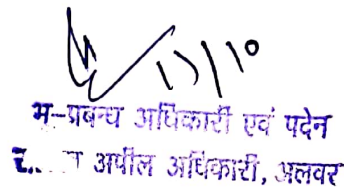 11/10
भ-प्रबन्ध अधिकारी एवं पदेन
अपील अधिकारी, अलवर